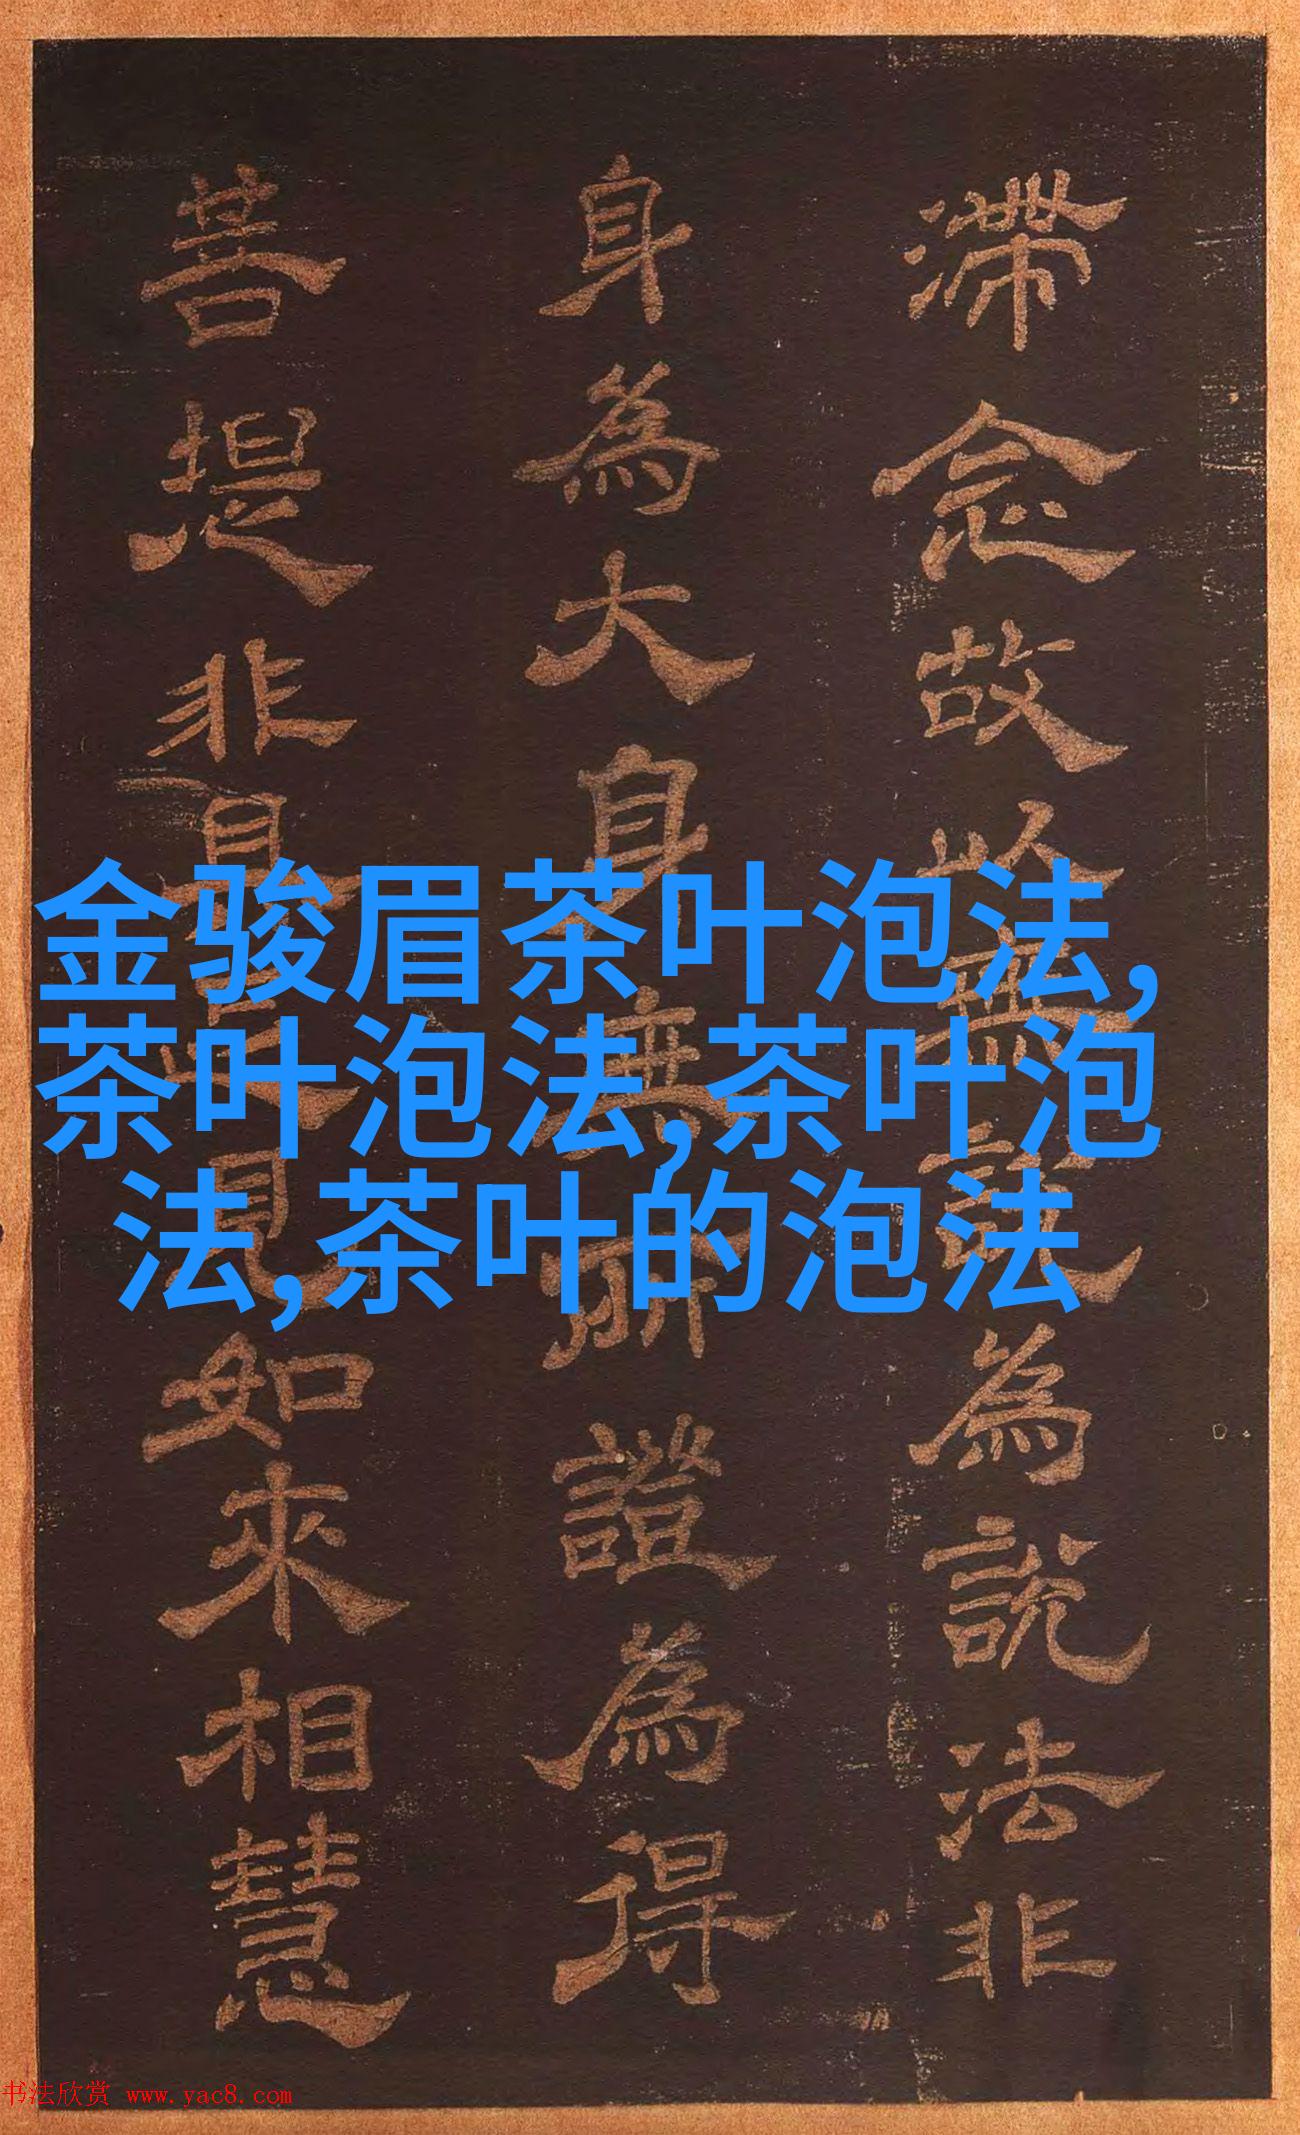 滞念故以無說為說法非
身為大身無所證為得
菩提非具足見如來相慧
金骏眉茶叶泡法,
茶叶泡法,茶叶泡
法,茶叶的泡法
书法欣赏 www.yac8.com